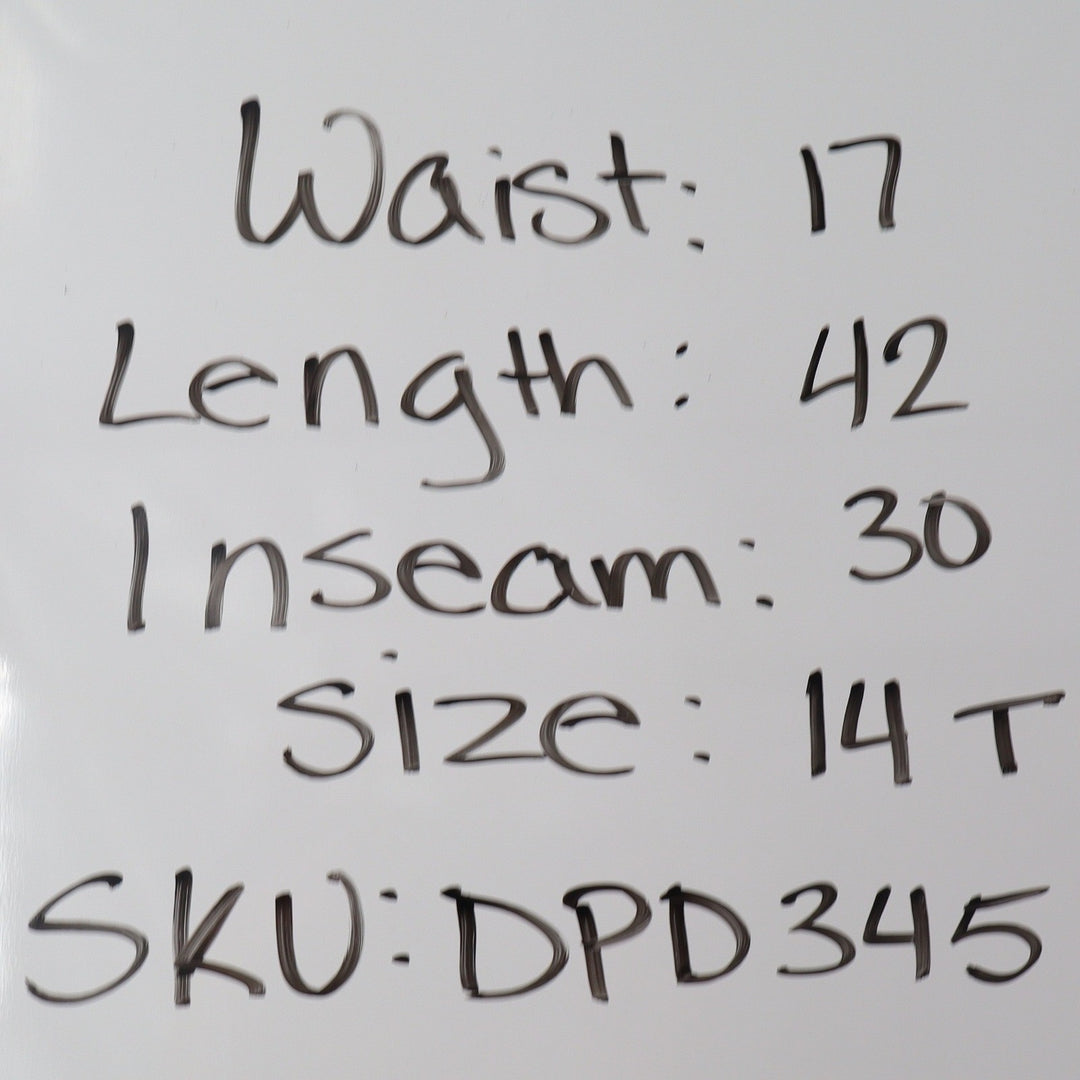 Waist: 17
Length: 42
Inseam: 30
Size: 14 T
SKU: DPD345